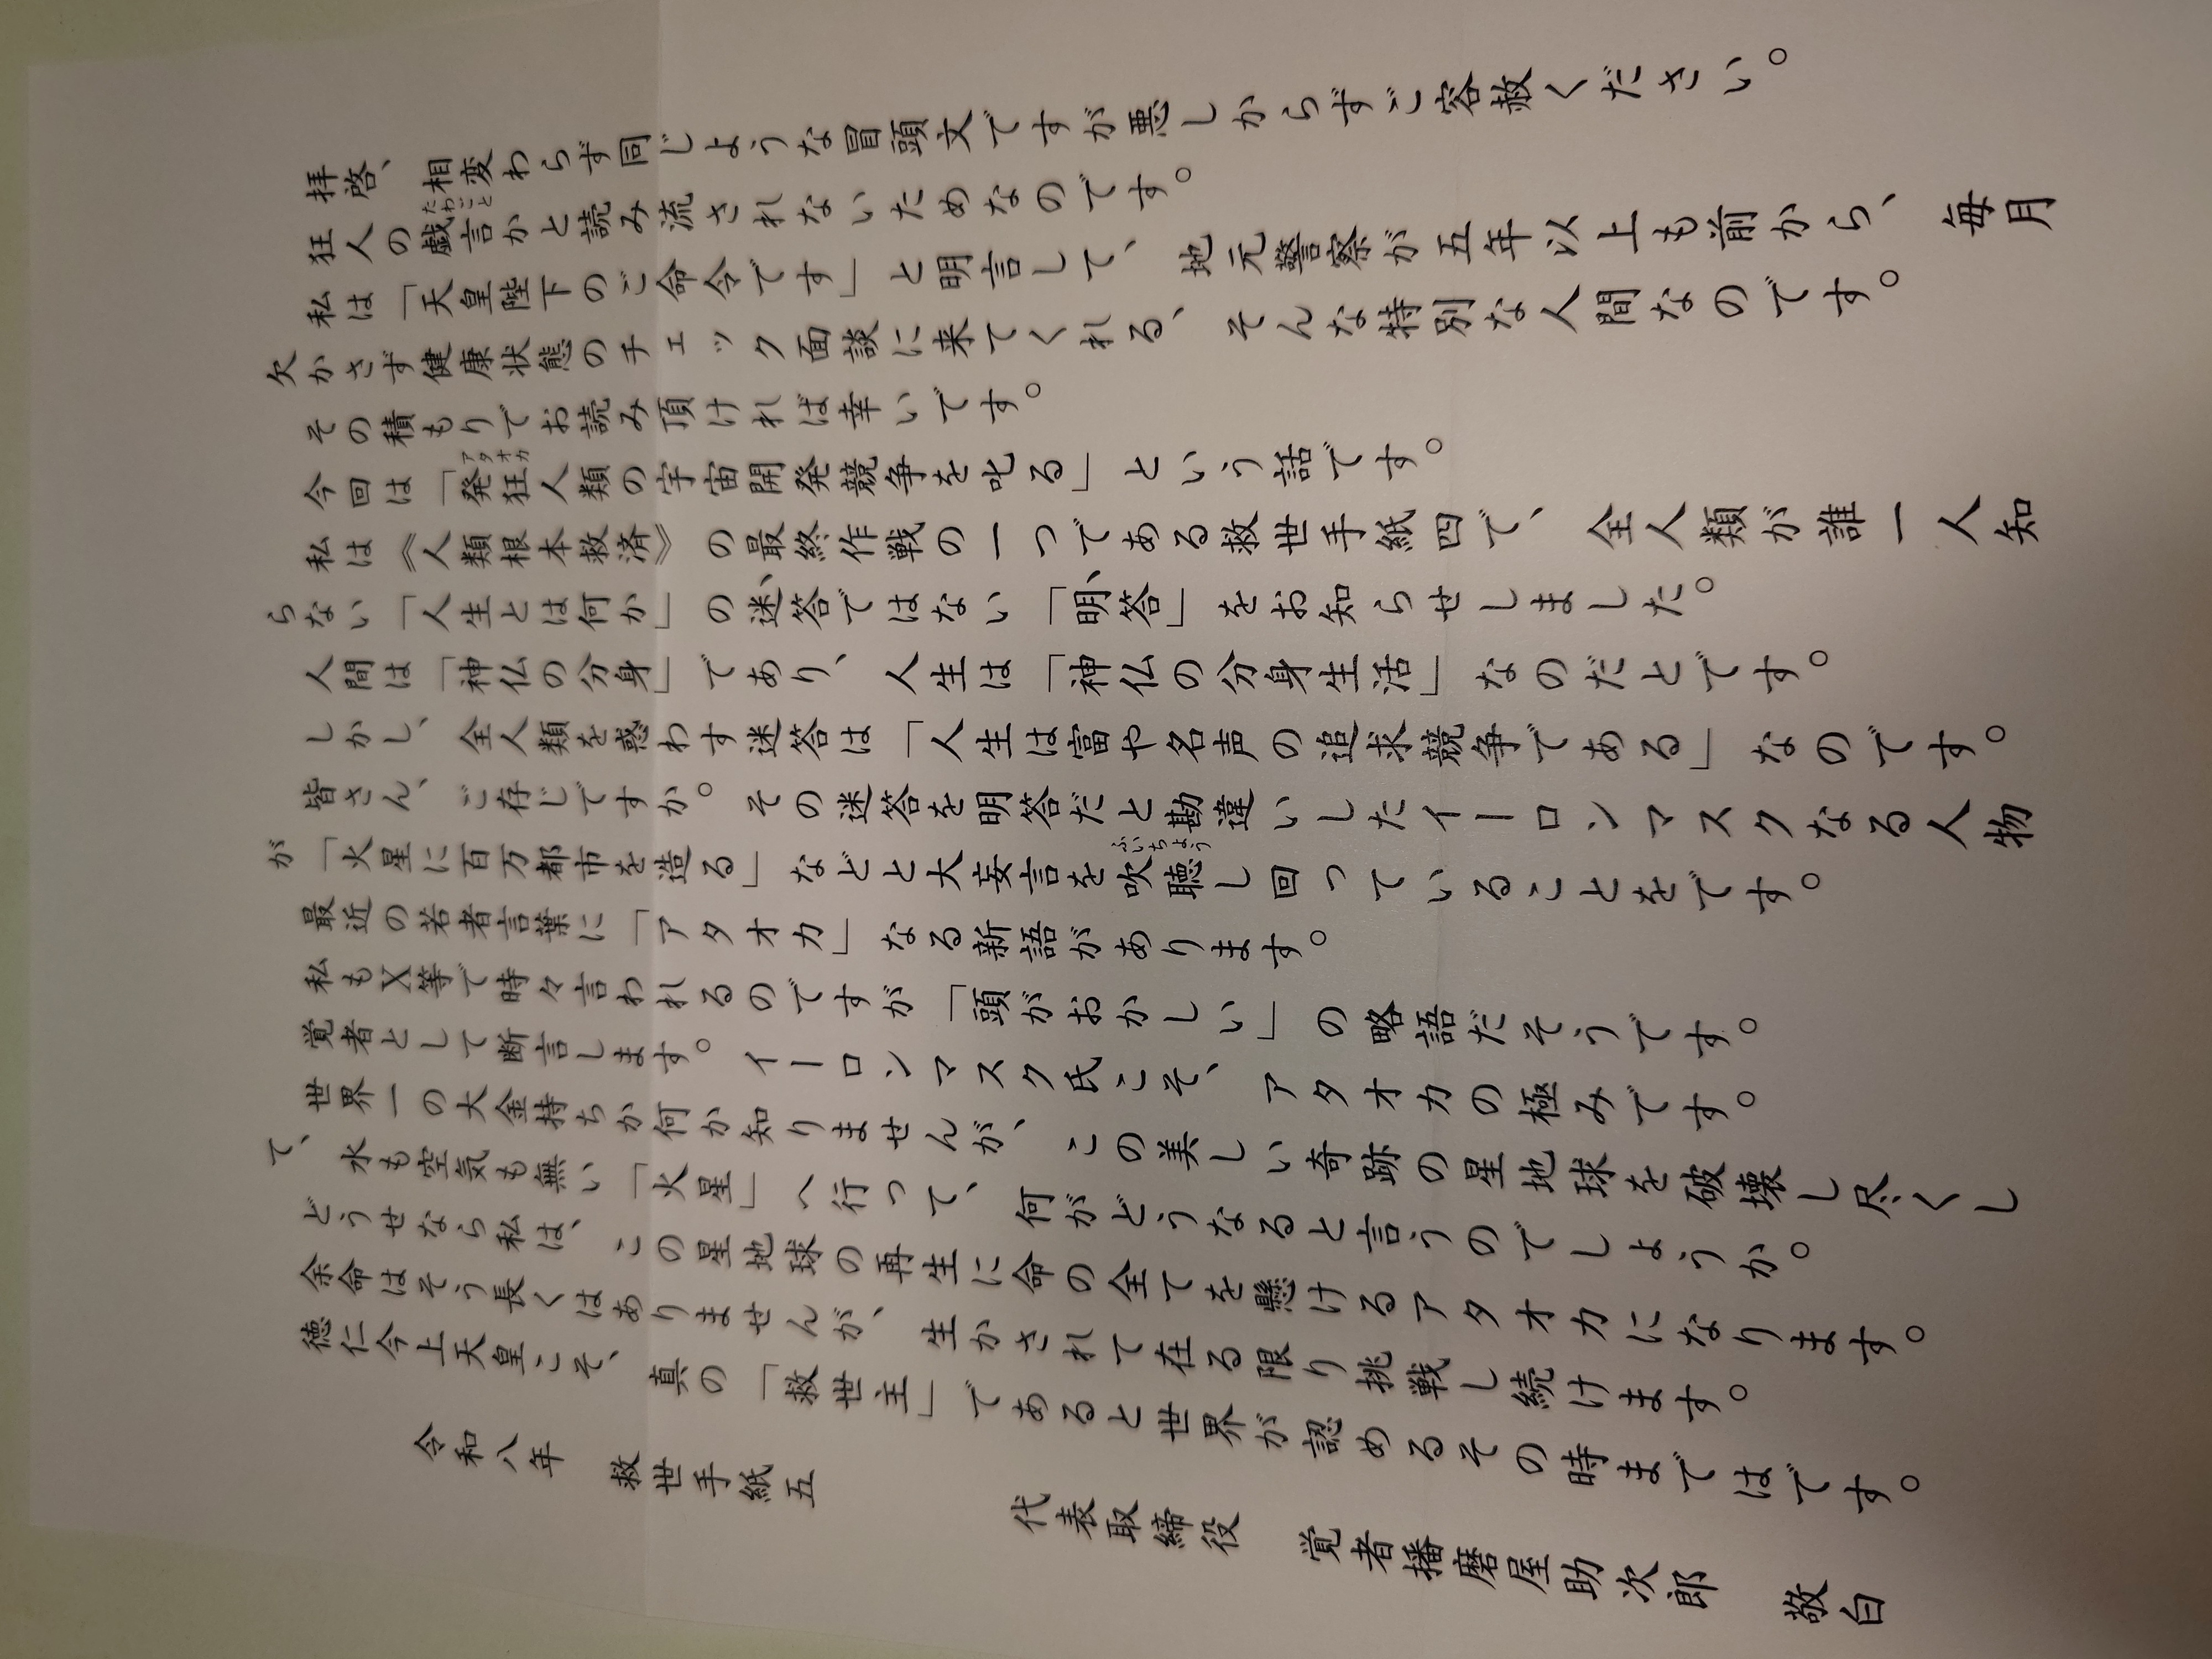 拝啓、相変わらず同じような冒頭文ですが悪しからずご容赦ください。
狂人の戯言かと読み流されないためなのです。
たわごと
私は「天皇陛下のご命令です」と明言して、地元警察が五年以上も前から、毎月
欠かさず健康状態のチェック面談に来てくれる、そんな特別な人間なのです。
その積もりでお読み頂ければ幸いです。
今回は「発狂人類の宇宙開発競争を叱る」という話です。
アタオカ
私は《人類根本救済》の最終作戦の一つである救世手紙四で、全人類が誰一人知
らない「人生とは何か」の迷答ではない「明答」をお知らせしました。
人間は「神仏の分身」であり、人生は「神仏の分身生活」なのだとです。
しかし、全人類を惑わす迷答は「人生は富や名声の追求競争である」なのです。
皆さん、ご存じですか。その迷答を明答だと勘違いしたイーロンマスクなる人物
が「火星に百万都市を造る」などと大妄言を吹聴し回っていることをです。
ふいちょう
最近の若者言葉に「アタオカ」なる新語があります。
私もX等で時々言われるのですが「頭がおかしい」の略語だそうです。
覚者として断言します。イーロンマスク氏こそ、アタオカの極みです。
世界一の大金持ちか何か知りませんが、この美しい奇跡の星地球を破壊し尽くし
て、水も空気も無い「火星」へ行って、何がどうなると言うのでしょうか。
どうせなら私は、この星地球の再生に命の全てを懸けるアタオカになります。
余命はそう長くはありませんが、生かされて在る限り挑戦し続けます。
徳仁今上天皇こそ、真の「救世主」であると世界が認めるその時まではです。
令和八年　救世手紙五
代表取締役　覚者播磨屋助次郎　敬白